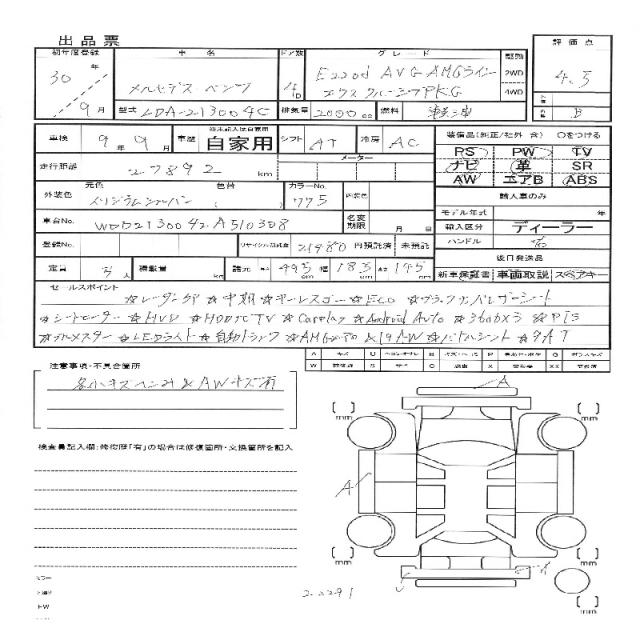 出品票
初年度登録 車名 ドア数 グレード 駆動 評価点
30年 メルセデス ベンツ 4D E220d AVG AMGライン 2WD 4.5
9月 エクスクルーシブPKG 4WD
型式 LDA-213004C 排気量 2000cc 燃料 軽油 B
車検 9年9月 車歴 自家用 シフト AT 冷房 AC 装備品(純正/社外 含) ○をつける
PS PW TV
走行距離 27892km メーター ナビ 革 SR
AW エアB ABS
外装色 元色 イリジウムシルバー 色替 カラーNo. 775 内装色 輸入車のみ
モデル年式 年
車台No. WDD2130042A510308 名変期限 月 日 輸入区分 ディーラー
登録No. リサイクル預託金 21980円 預託済 未預託 ハンドル 右
後日発送品
定員 5人 積載量 kg 諸元 長さ 495 幅 185 高さ 145 新車保証書 車両取説 スペアキー
セールスポイント
☆レーダーSP ☆中期 ☆キーレスゴー ☆ECO ☆ブラックパレザーシート
☆シートヒーター ☆HUD ☆HDDナビTV ☆Carplay ☆Android Auto ☆360°カメラ ☆PTS
☆ブルメスター ☆LEDライト ☆自動トランク ☆AMGエアロ&19AW ☆パドルシフト ☆9AT
注意事項・不具合箇所
各小キズヘコみ&AWキズ有
検査員記入欄:修復歴「有」の場合は修復箇所・交換箇所を記入
A
mm mm
A
mm mm
U
mm
ミラー